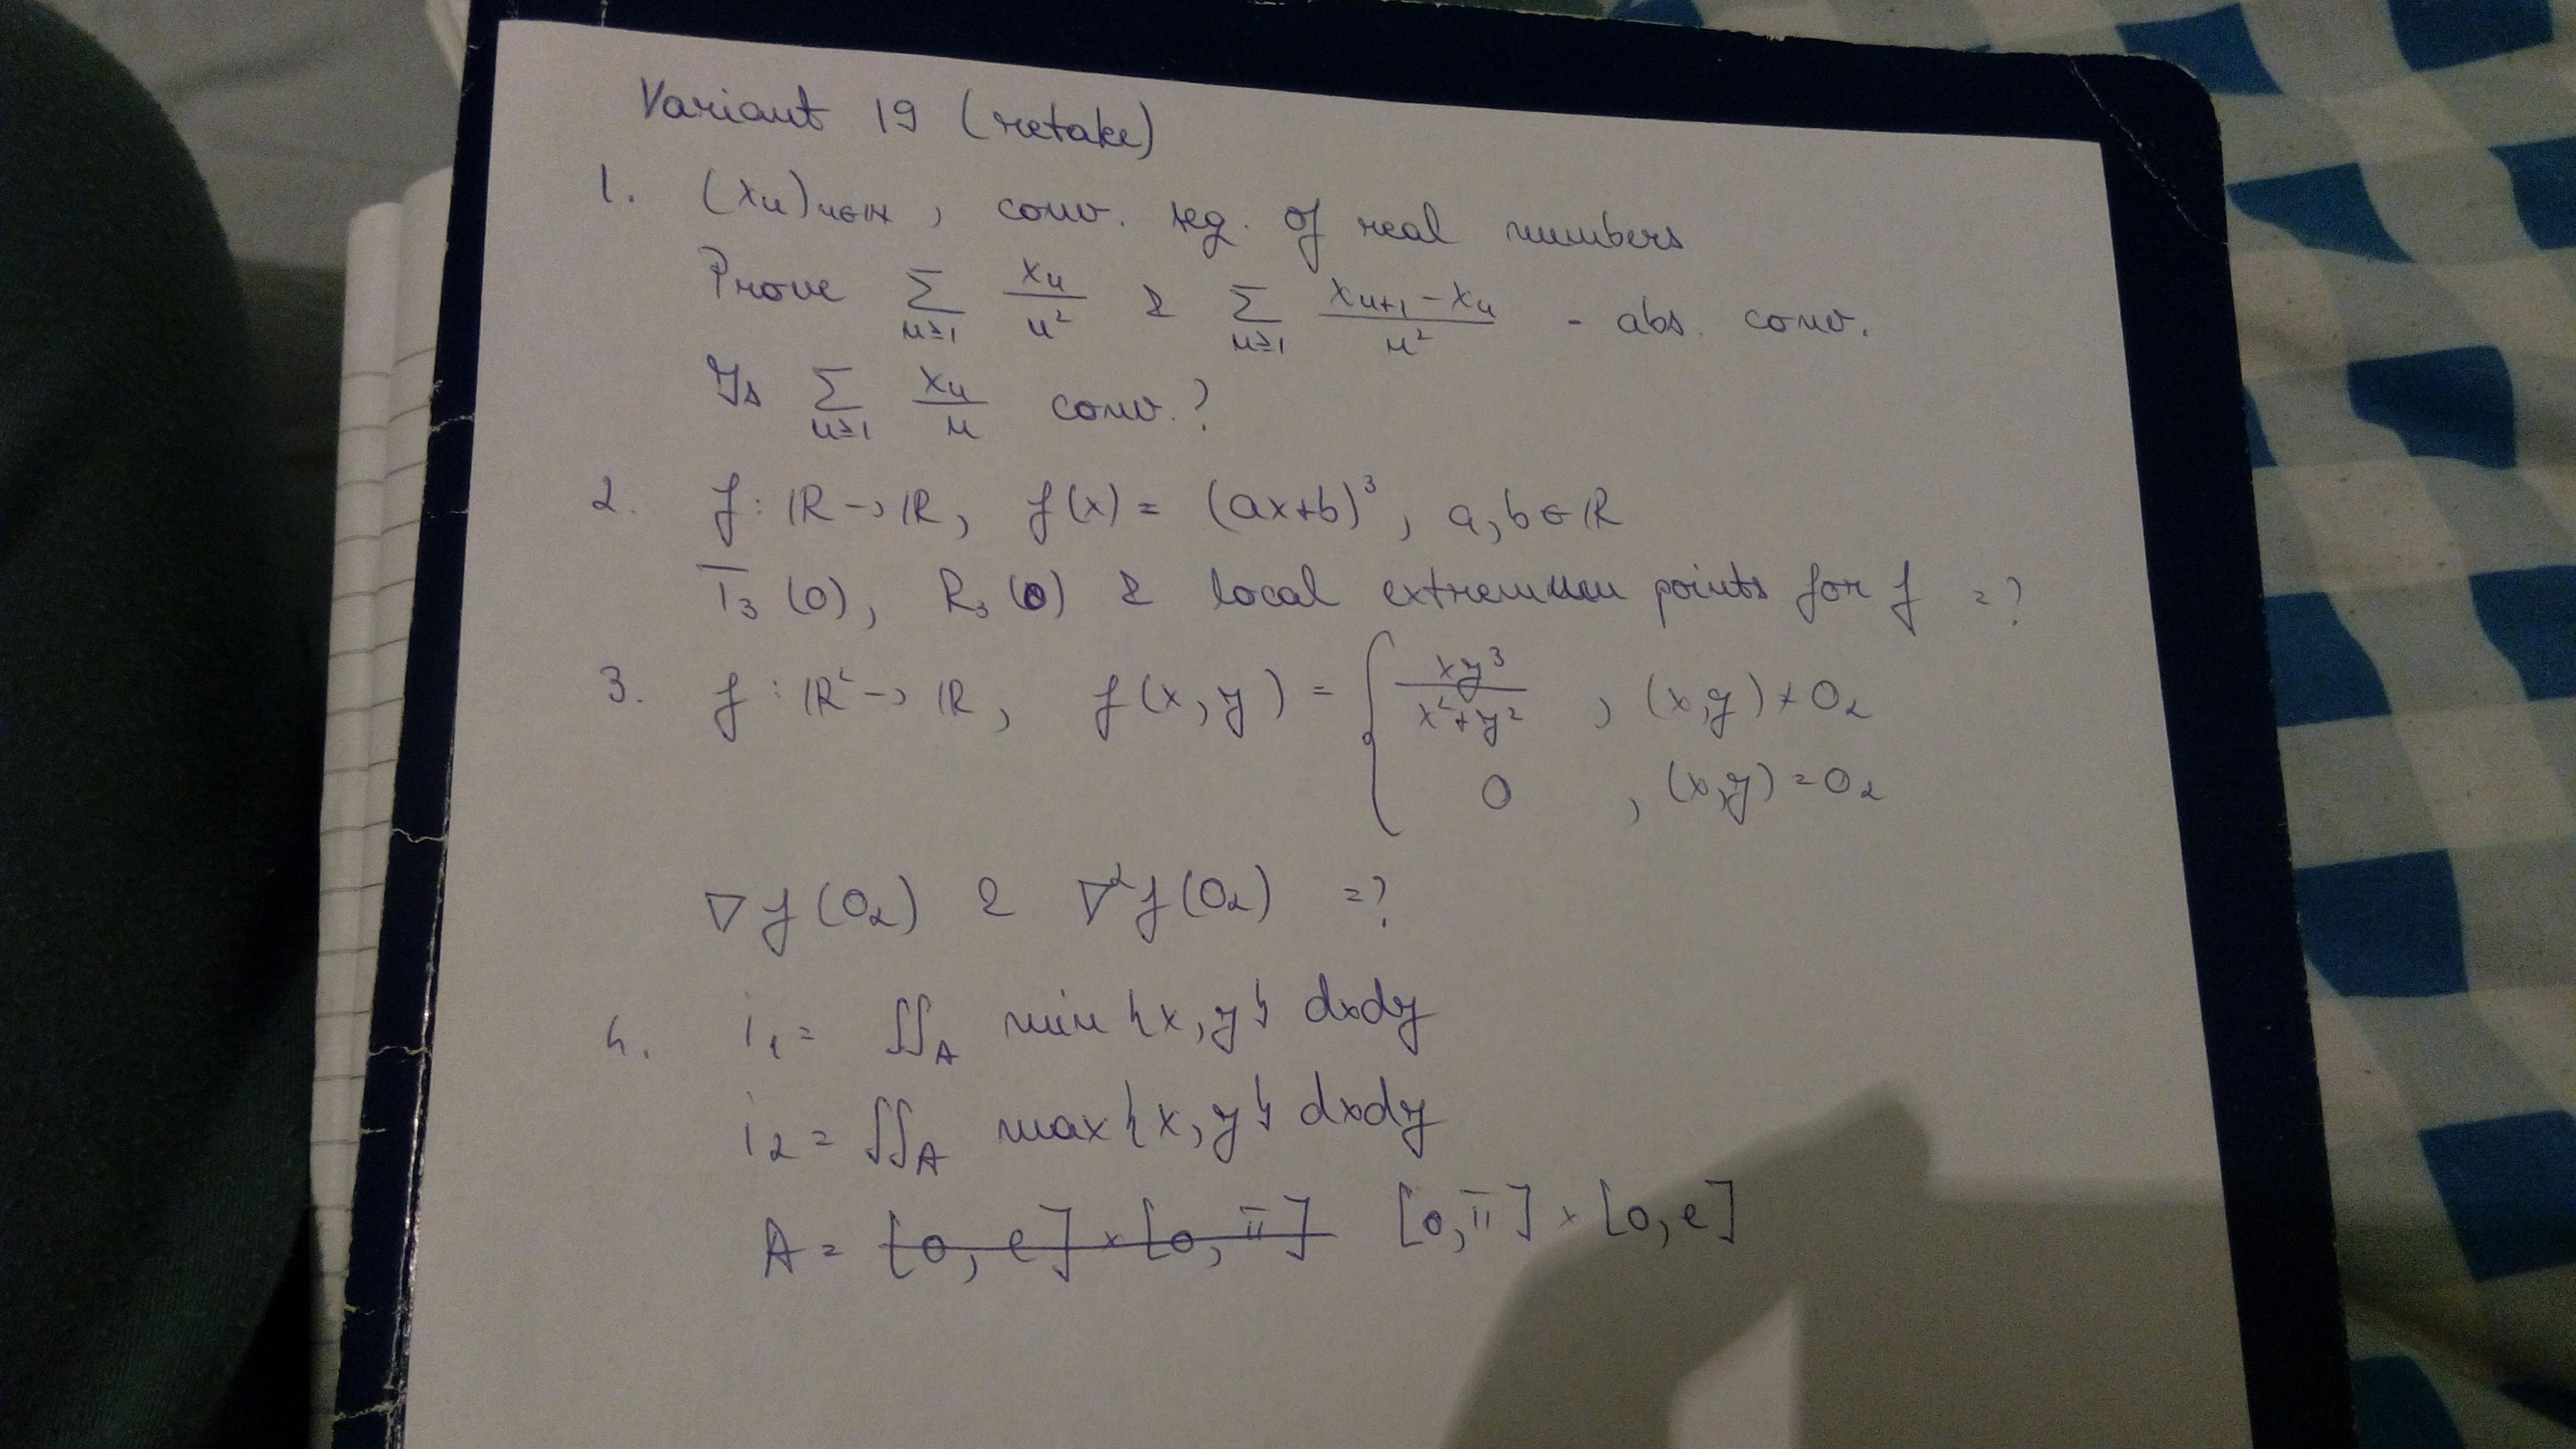 Variant 19 (retake)
1. (xn)n∈ℕ, conv. seq. of real numbers
Prove ∑n≥1 xn/n² & ∑n≥1 (xn+1 - xn)/n² - abs. conv.
Is ∑n≥1 xn/n conv.?
2. f: ℝ → ℝ, f(x) = (ax+b)³, a, b ∈ ℝ
T3 (0), R3 (0) & local extremum points for f = ?
3. f: ℝ² → ℝ, f(x, y) = { xy³/(x²+y²), (x,y) ≠ 02
0, (x,y) = 02
∇f(02) & ∇²f(02) = ?
4. i1 = ∬A min{x, y} dxdy
i2 = ∬A max{x, y} dxdy
A = [0, e] × [0, π] [0, π] × [0, e]